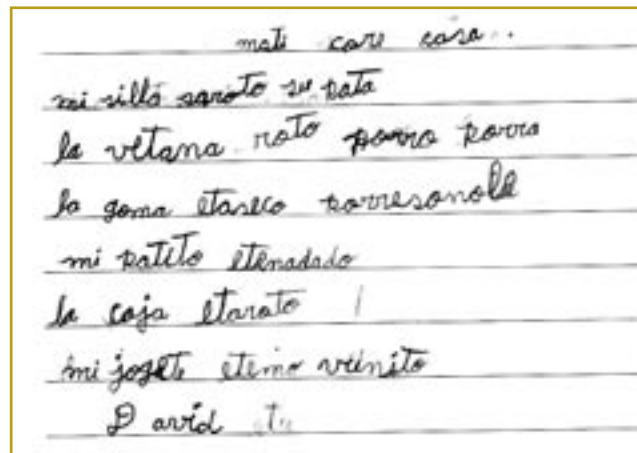 mati care casa..
mi silla saroto su pata
la vetana roto porro porra
la goma etaseco porresonole
mi patito etenadado
la caja etaroto
mi jogete etemo veinito
David